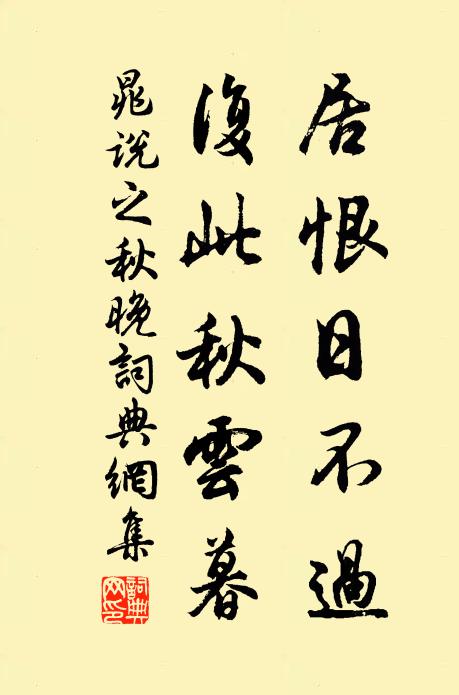 居恨日不過
復此秋雲暮
晁説之秋晚詞典網集
詞典网印